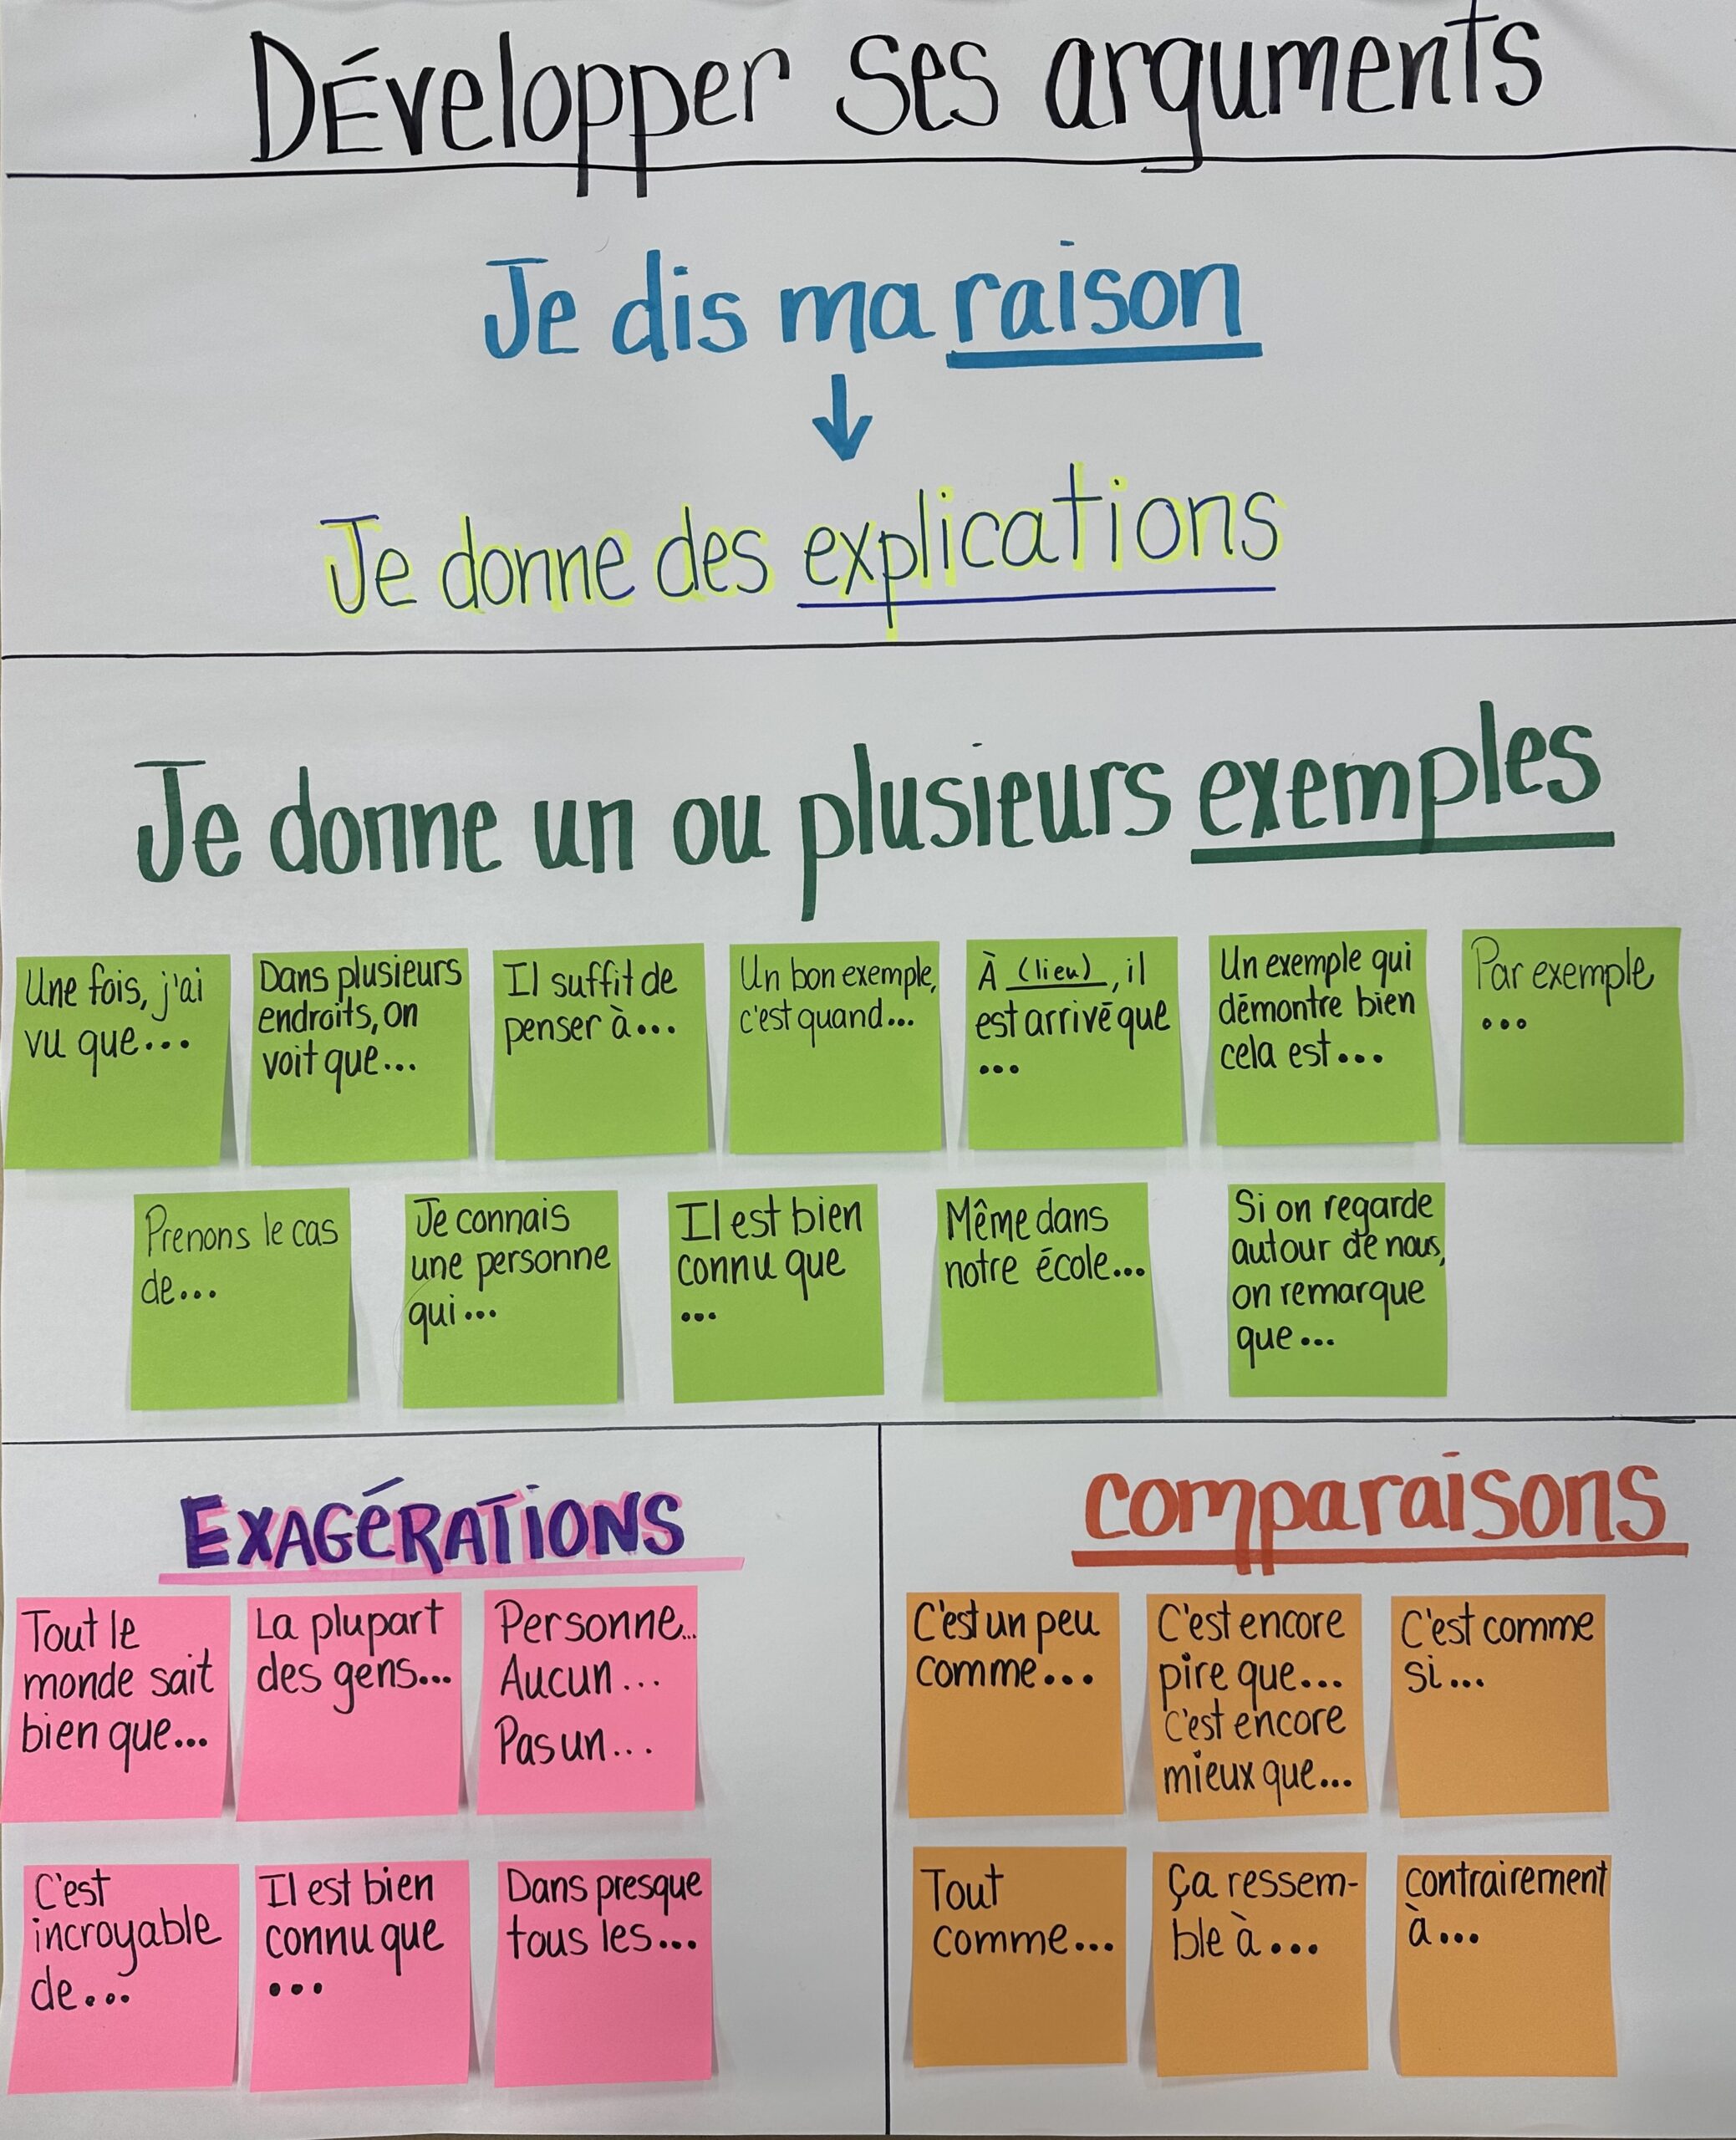 DÉvelopper ses arguments
Je dis ma raison
↓
Je donne des explications
Je donne un ou plusieurs exemples
Une fois, j'ai
vu que...
Dans plusieurs
endroits, on
voit que...
Il suffit de
penser à...
Un bon exemple,
c'est quand...
À (lieu), il
est arrivé que
...
Un exemple qui
démontre bien
cela est...
Par exemple
...
Prenons le cas
de...
Je connais
une personne
qui...
Il est bien
connu que
...
Même dans
notre école...
Si on regarde
autour de nous,
on remarque
que...
EXAGÉRATIONS
Tout le
monde sait
bien que...
La plupart
des gens...
Personne...
Aucun...
Pas un...
C'est
incroyable
de...
Il est bien
connu que
...
Dans presque
tous les...
comparaisons
C'est un peu
comme...
C'est encore
pire que...
C'est encore
mieux que...
C'est comme
si...
Tout
comme...
Ça ressem-
ble à...
contrairement
à...